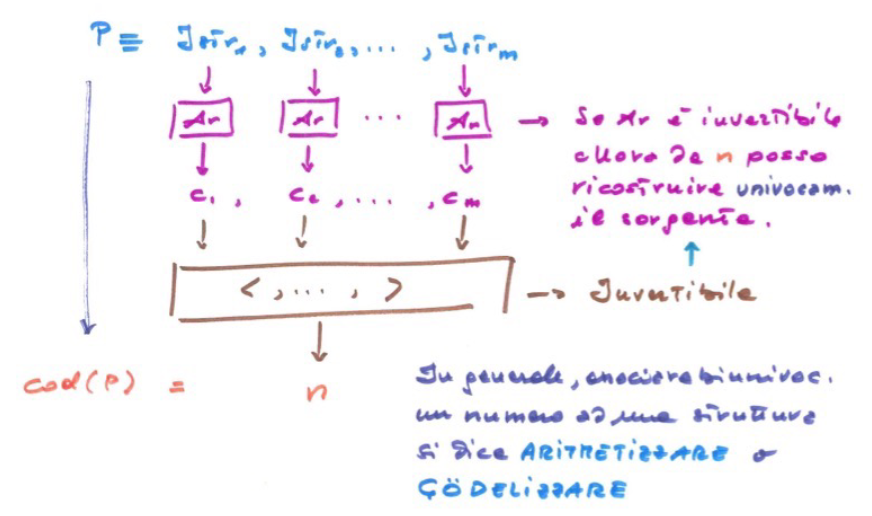 P ≡ Istr₁, Istr₂, ... , Istrₘ
Ar Ar ... Ar → Se Ar è invertibile
allora da n posso
c₁, c₂, ..., cₘ ricostruire univocam.
il sorgente.
< , ... , > → Invertibile
cod(P) = n
In generale, associare biunivoc.
un numero ad una struttura
si dice ARITMETIZZARE o
GÖDELIZZARE